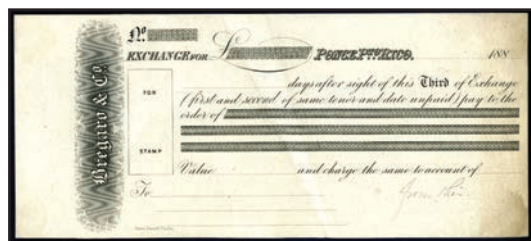 Bregaro & Co.
No.
EXCHANGE FOR £ PONCE Pto. RICO. 188
FOR
STAMP
days after sight of this Third of Exchange
(first and second of same tenor and date unpaid) pay to the
order of
Value and charge the same to account of
To